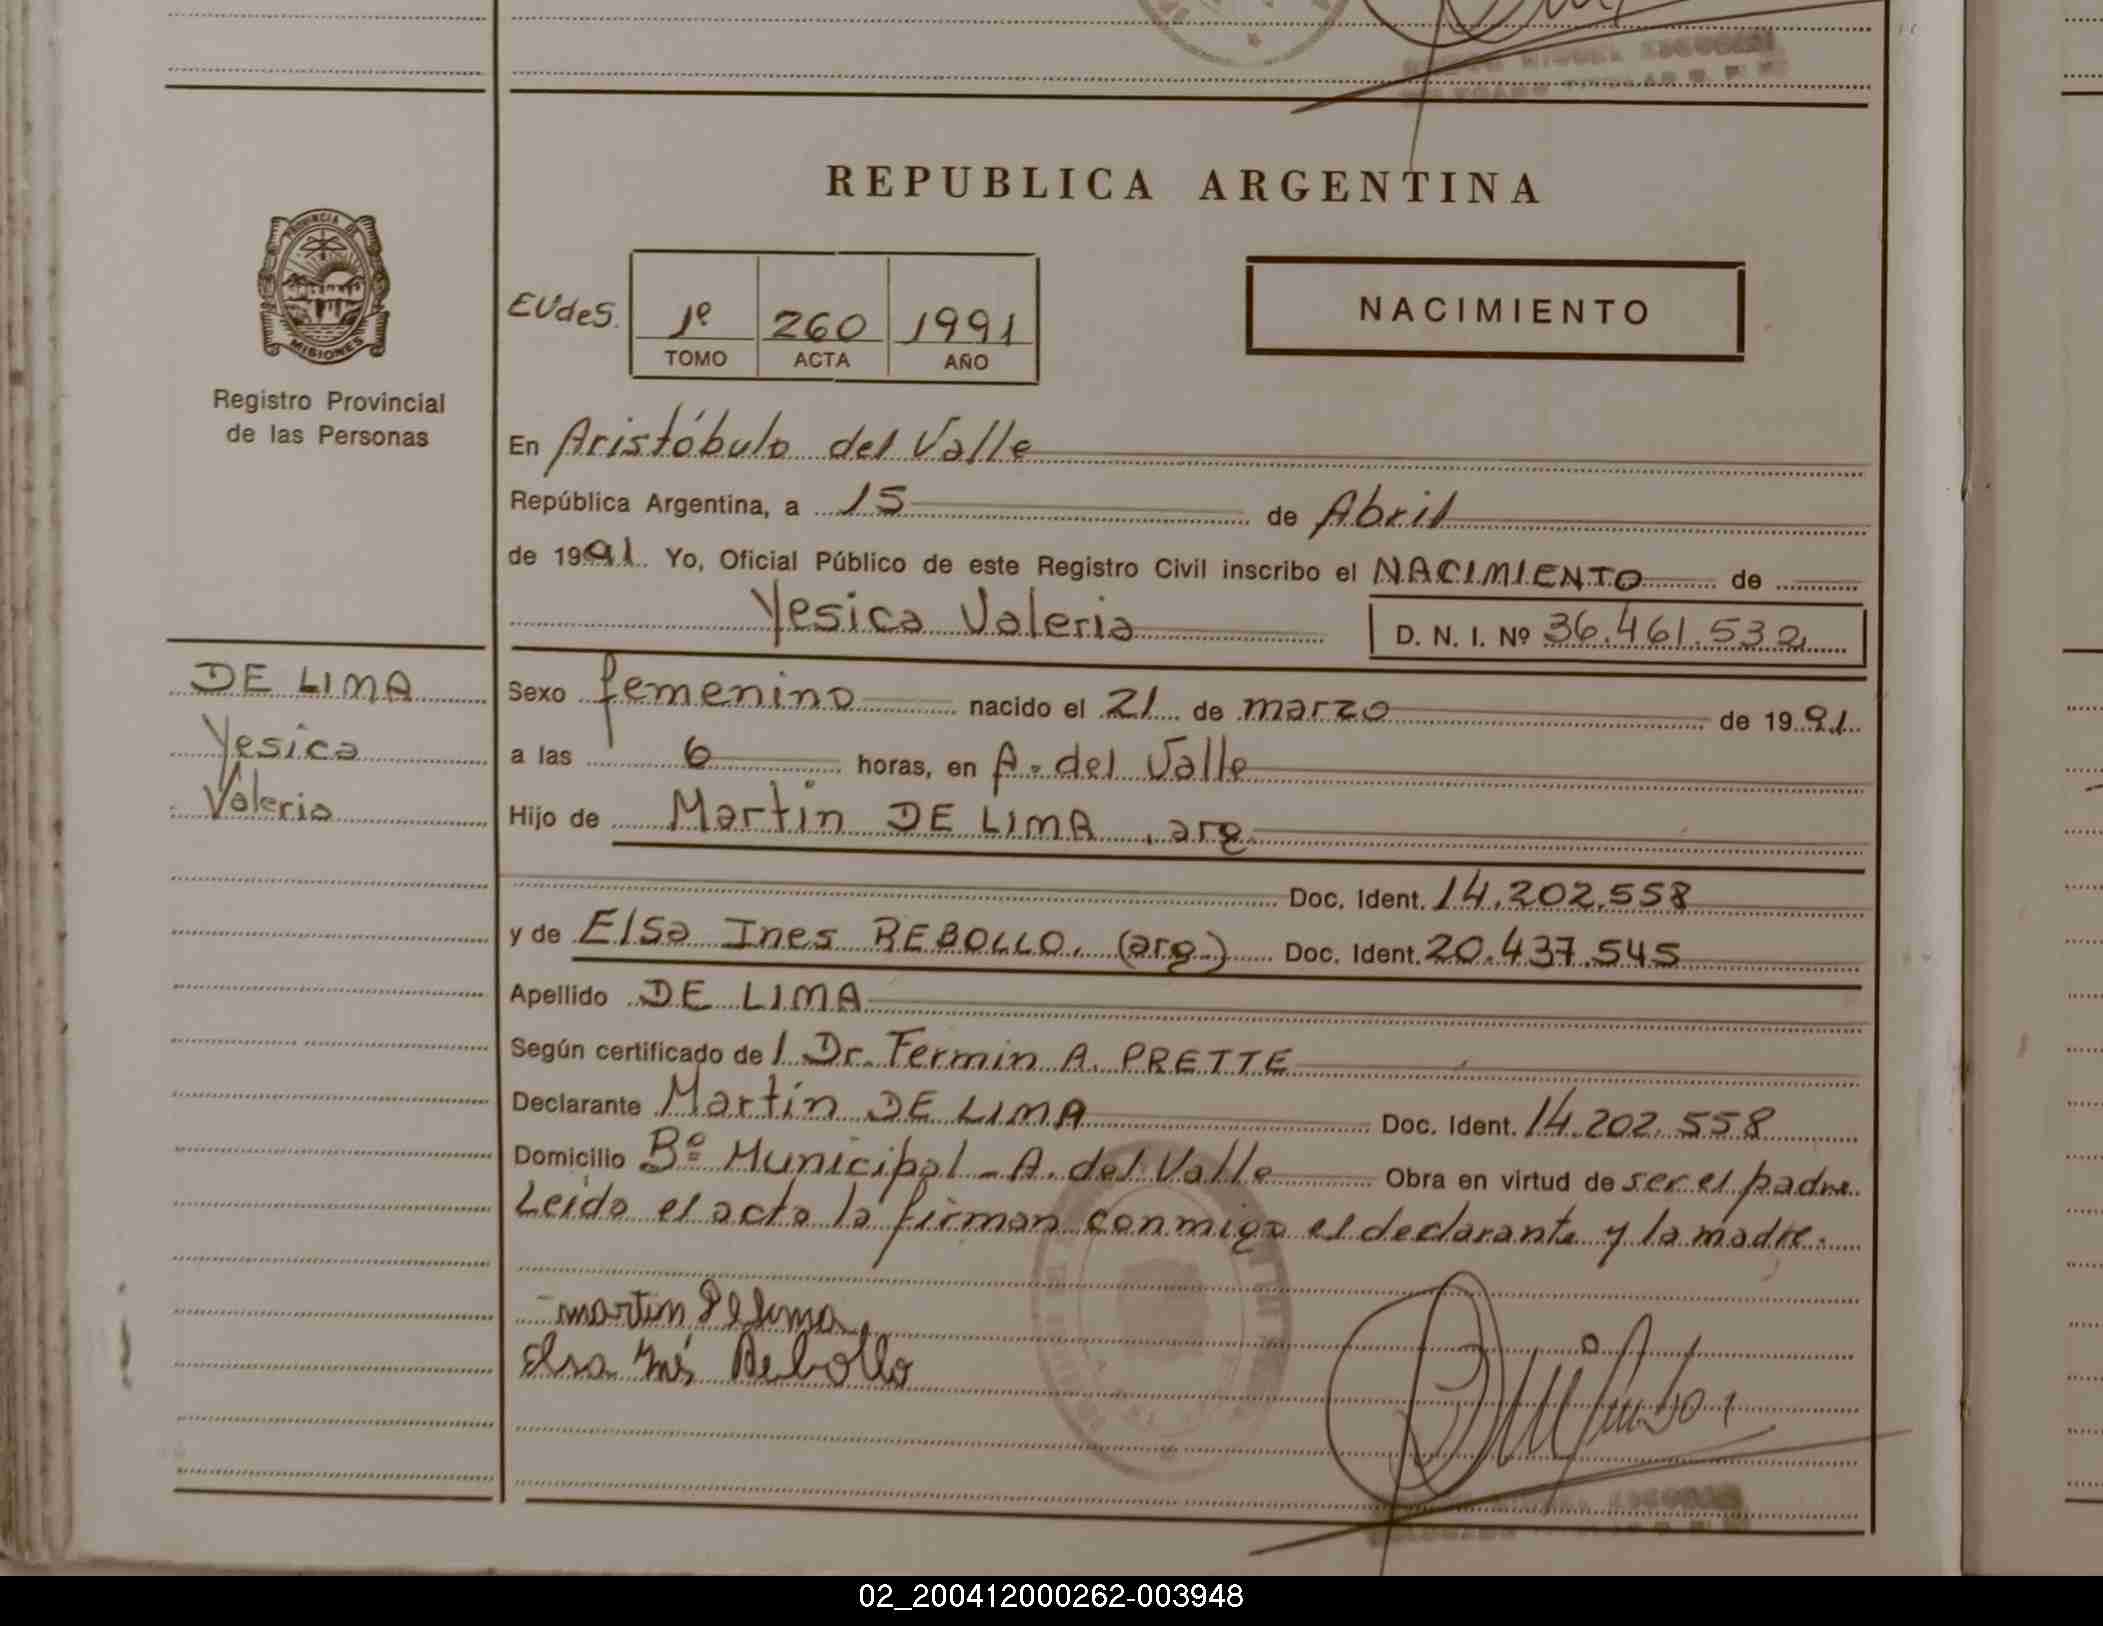 REPUBLICA ARGENTINA
PROVINCIA DE MISIONES
Registro Provincial
de las Personas
EVdeS.
1º 260 1991
TOMO ACTA AÑO
NACIMIENTO
En Aristóbulo del Valle
República Argentina, a 15 de Abril
de 1991. Yo, Oficial Público de este Registro Civil inscribo el NACIMIENTO de
Yesica Valeria
D. N. I. Nº 36.461.532
DE LIMA
Yesica
Valeria
Sexo femenino nacido el 21 de marzo de 1991
a las 6 horas, en A. del Valle
Hijo de Martin DE LIMA, arg.
Doc. Ident. 14.202.558
y de Elsa Ines REBOLLO, (arg.) Doc. Ident. 20.437.545
Apellido DE LIMA
Según certificado de l Dr. Fermin A. PRETTE
Declarante Martin DE LIMA Doc. Ident. 14.202.558
Domicilio Bº Municipal - A. del Valle Obra en virtud de ser el padre.
Leida el acta la firman conmigo el declarante y la madre.
martin De lima
Elsa Inés Rebollo
02_200412000262-003948